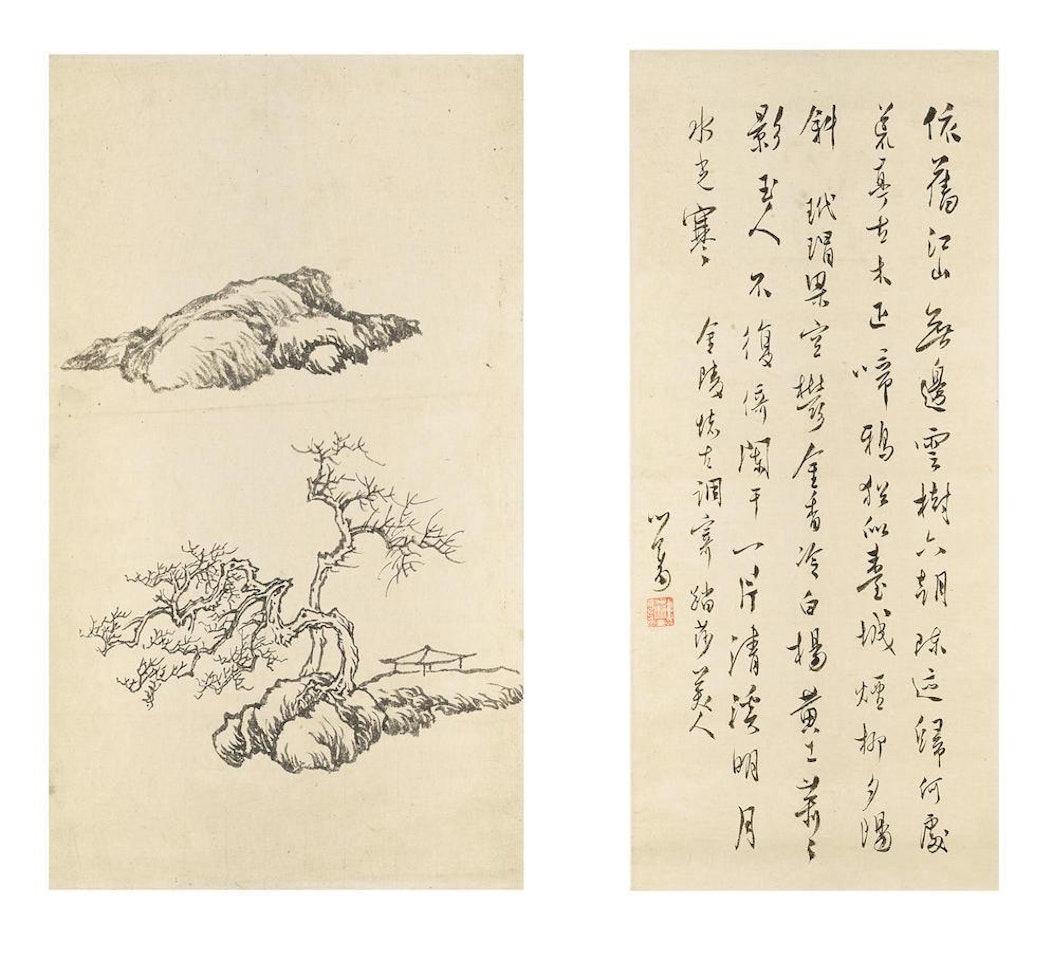 依舊江山無邊雲樹六朝陳迹歸何處
荒亭古木正啼鴉猶似臺城煙柳夕陽
斜 玳瑁梁空鬱金香冷白楊黃土蕭〻
影玉人不復倚闌干一片清溪明月
水光寒 金陵懷古調寄踏莎美人
心畬